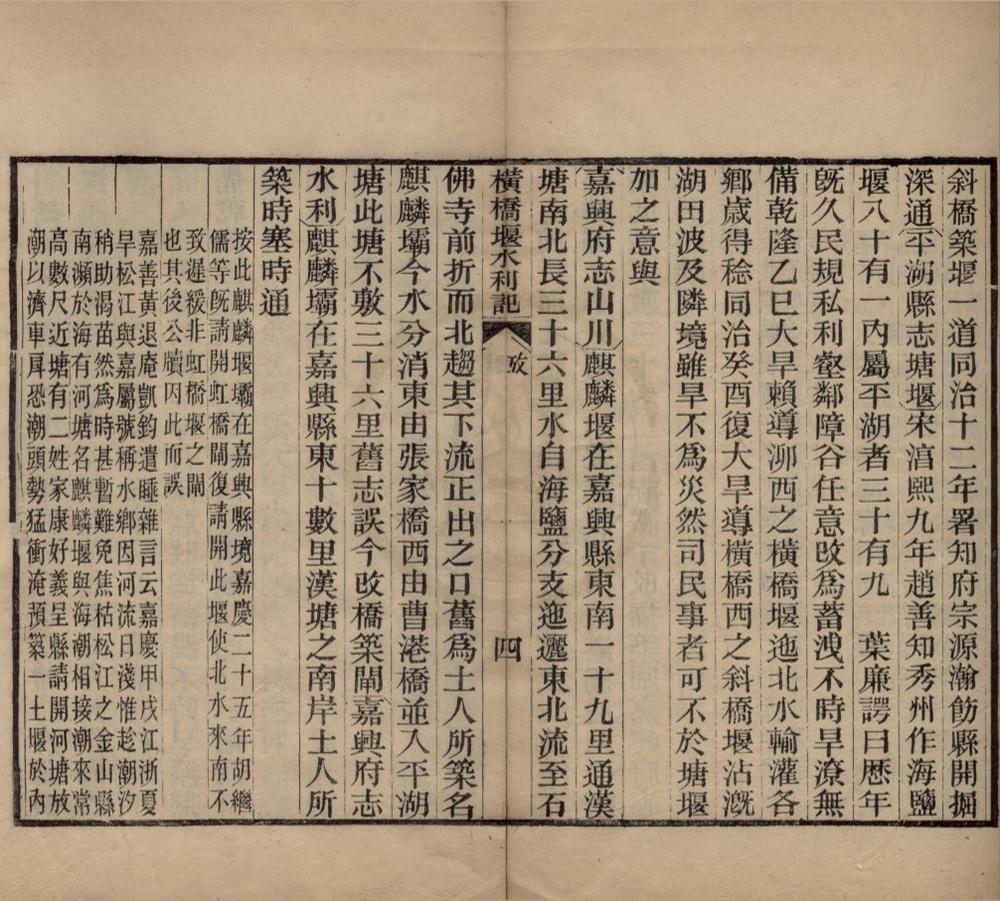 斜橋築堰一道同治十二年署知府宗源瀚飭縣開掘
深通平湖縣志塘堰宋湻熙九年趙善知秀州作海鹽
堰八十有一內屬平湖者三十有九 葉廉諤曰歷年
旣久民規私利壑鄰障谷任意改爲蓄洩不時旱潦無
備乾隆乙巳大旱賴導泖西之橫橋堰迤北水輸灌各
鄉歲得稔同治癸酉復大旱導橫橋西之斜橋堰沾漑
湖田波及隣境雖旱不爲災然司民事者可不於塘堰
加之意與
嘉興府志山川麒麟堰在嘉興縣東南一十九里通漢
塘南北長三十六里水自海鹽分支迤邐東北流至石
橫橋堰水利記 攷 四
佛寺前折而北趨其下流正出之口舊爲土人所築名
麒麟壩今水分消東由張家橋西由曹港橋並入平湖
塘此塘不敷三十六里舊志誤今改橋築閘嘉興府志
水利麒麟壩在嘉興縣東十數里漢塘之南岸土人所
築時塞時通
按此麒麟堰壩在嘉興縣境嘉慶二十五年胡繼
儒等旣請開虹橋閘復請開此堰使北水來南不
致遲緩非虹橋堰之閘
也其後公牘因此而誤
嘉善黃退庵凱鈞遣睡雜言云嘉慶甲戌江浙夏
旱松江與嘉屬號稱水鄉因河流日淺惟趁潮汐
稍助渴苗然爲時甚暫難免焦枯松江之金山縣
南瀕於海有河塘名麒麟堰與海潮相接潮來常
高數尺近塘有二姓家康好義呈縣請開河塘放
潮以濟車戽恐潮頭勢猛衝淹預築一土堰於內